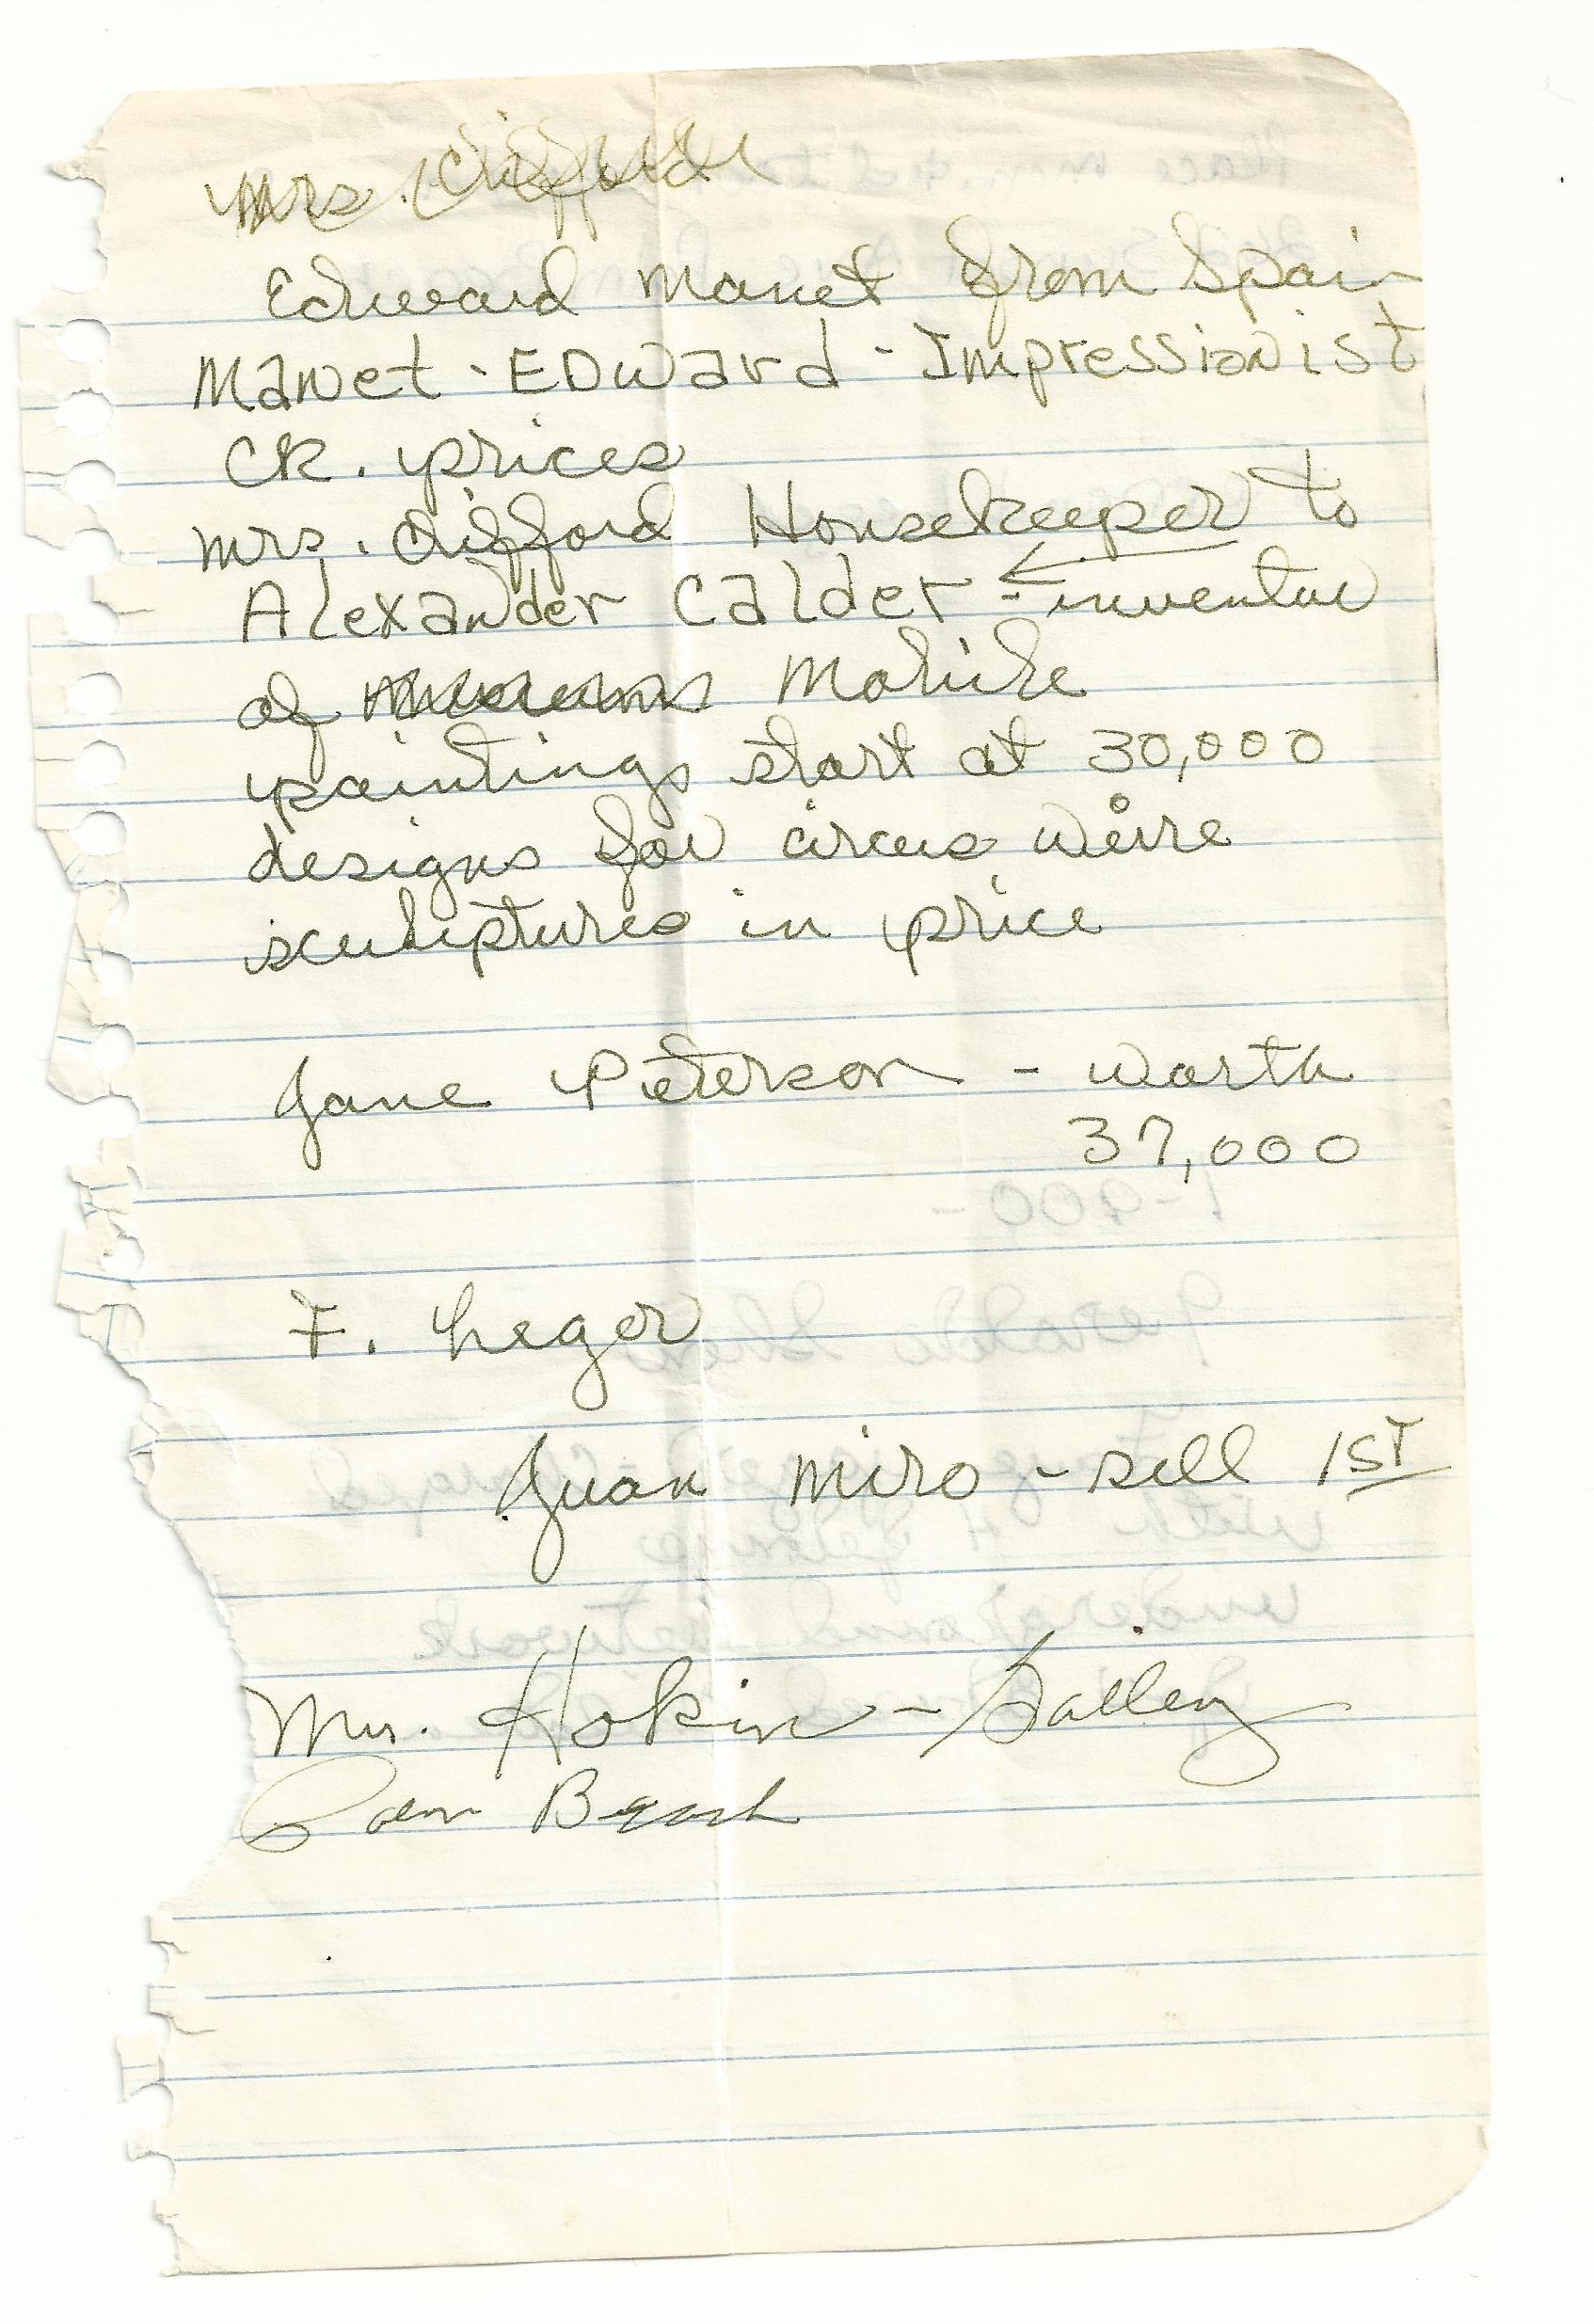 Mrs. Clifford
Edward Manet from Spain
Manet - EDward - Impressionist
CK. prices
Mrs. Clifford Housekeeper to
Alexander Calder - inventor
of Mobile
paintings start at 30,000
designs for circus wire
sculptures in price
Jane Peterson - worth
37,000
F. Leger
Juan Miro - sell 1ST
Mrs. Hokin - Gallery
Palm Beach